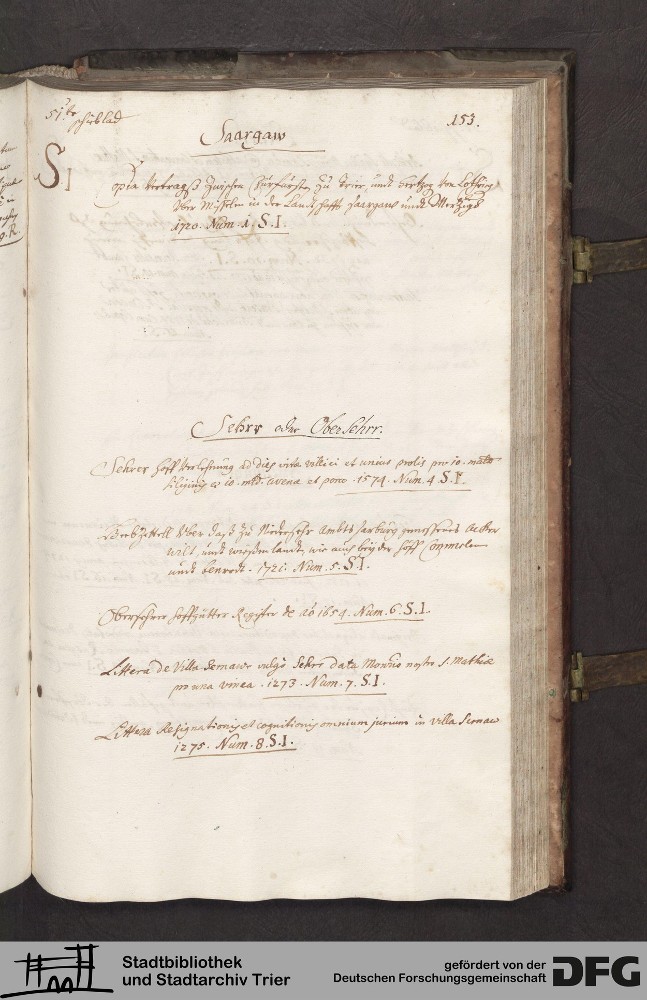 51te schublad
153.
Saargaw
S I
Copia Vertrags zwischen Churfürsten zu Trier, undt Hertzog von Lothring
über in der Landtschafft Saargaw undt Mertzig
1720. Num. 1. S.I.
Sehrr oder OberSehrr.
Sehrer Hoff Verlehnung ad dies vitae villici et unius prolis pro 10. maltr
siliginis et 10. mltr. avenae et porco. 1574. Num. 4. S.I.
über daß zu Niedersehr Ambts Sarburg genossenes Acker
wilt, undt landt, wie auch beÿder Höff
undt 1721. Num. 5. S.I.
Obersehrer Hoffgütter Register de aõ 1654. Num. 6. S.I.
Littera de Villa Sernaw vulgò Sehrr data Monrio nostro S. Mathiae
pro una vinea. 1273. Num. 7. S.I.
Littera Resignationis et cognitionis omnium jurium in villa Sernaw
1275. Num. 8. S.I.
Stadtbibliothek
und Stadtarchiv Trier
gefördert von der
Deutschen Forschungsgemeinschaft
DFG